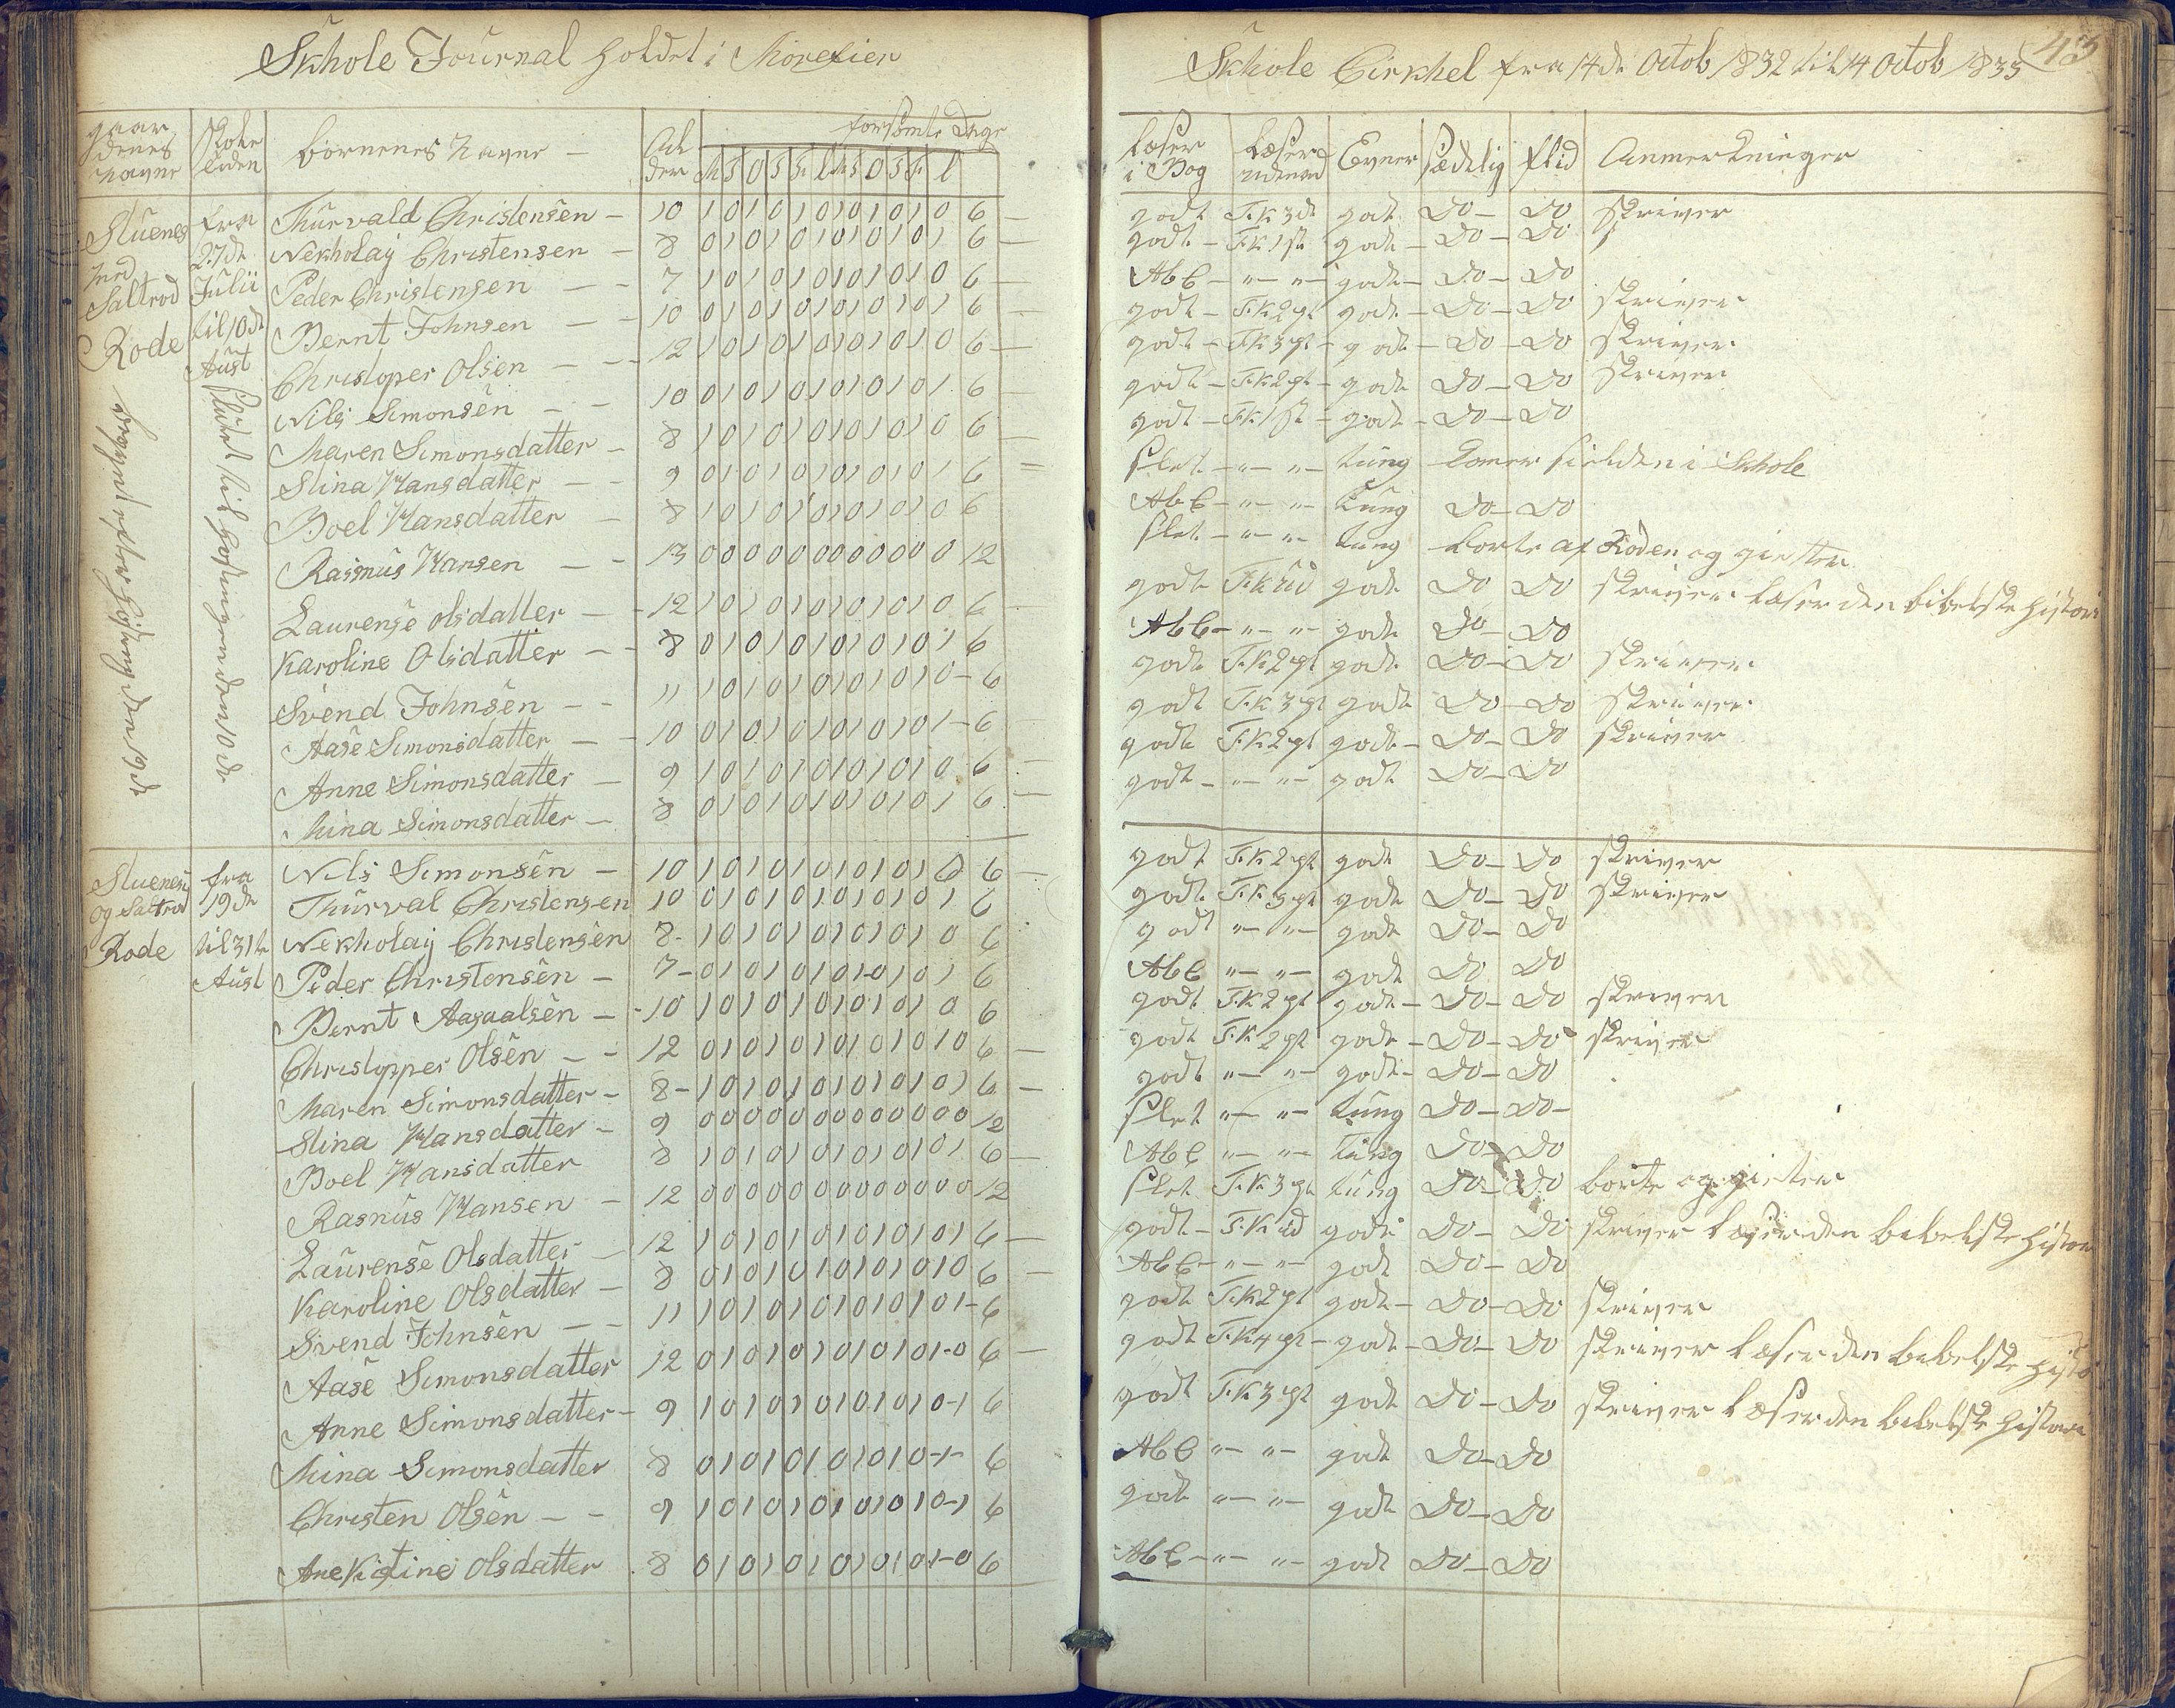 Skhole Journal holdet i Morefier
Skhole Cirkhel fra 14de Octob 1832 til 14 Octob 1833
43
gaardenes navne
Skole tiden
börnenes Navne
Alder
forsömte Dage
M T O T F L M T O T F L
læser i Bog
læser udenad
Evner
sædelig
flid
Anmerkninger
Stuenes med Saltrod Rode
fra 27de Julii til 10de Aust
sluttet til hostningen den 10de
Thurvald Christensen 10 1 0 1 0 1 0 1 0 1 0 1 0 6 godt F.K 3dt godt Do Do skriver
Nekholaij Christensen 8 0 1 0 1 0 1 0 1 0 1 0 1 6 godt F.K 1st godt Do Do
Peder Christensen 7 1 0 1 0 1 0 1 0 1 0 1 0 6 AbC " " godt Do Do
Bernt Johnsen 10 0 1 0 1 0 1 0 1 0 1 0 1 6 godt F.K 2pt godt Do Do skriver
Christoper Olsen 12 1 0 1 0 1 0 1 0 1 0 1 0 6 godt F.K 3pt godt Do Do skriver
Nils Simonsen 10 0 1 0 1 0 1 0 1 0 1 0 1 6 godt F.K 2pt godt Do Do skriver
Maren Simonsdatter 8 1 0 1 0 1 0 1 0 1 0 1 0 6 godt F.K 1st godt Do Do
Stina Hansdatter 9 0 1 0 1 0 1 0 1 0 1 0 1 6 slet " " tung komer sielden i Skhole
Boel Hansdatter 8 1 0 1 0 1 0 1 0 1 0 1 0 6 AbC " " tung Do Do
Rasmus Hansen 13 0 0 0 0 0 0 0 0 0 0 0 0 12 slet " " tung borte af Roden og gietter
Laurense Olsdatter 12 1 0 1 0 1 0 1 0 1 0 1 0 6 godt F.K ud godt Do Do skriver læser den bibelske histori
Karoline Olsdatter 8 0 1 0 1 0 1 0 1 0 1 0 1 6 AbC " " godt Do Do
Svend Johnsen 11 1 0 1 0 1 0 1 0 1 0 1 0 6 godt F.K 2pt godt Do Do skriver
Aase Simonsdatter 10 0 1 0 1 0 1 0 1 0 1 0 1 6 godt F.K 3pt godt Do Do skriver
Anne Simonsdatter 9 1 0 1 0 1 0 1 0 1 0 1 0 6 godt F.K 2pt godt Do Do skriver
Mina Simonsdatter 8 0 1 0 1 0 1 0 1 0 1 0 1 6 godt " " godt Do Do
Stuenes og Saltrod Rode
fra 19de til 31te Aust
Nils Simonsen 10 1 0 1 0 1 0 1 0 1 0 1 0 6 godt F.K 2pt godt Do Do skriver
Thurval Christensen 10 0 1 0 1 0 1 0 1 0 1 0 1 6 godt F.K 3pt godt Do Do skriver
Nekholaij Christensen 8 1 0 1 0 1 0 1 0 1 0 1 0 6 godt " " godt Do Do
Peder Christensen 7 0 1 0 1 0 1 0 1 0 1 0 1 6 AbC " " godt Do Do
Bernt Aagaalsen 10 1 0 1 0 1 0 1 0 1 0 1 0 6 godt F.K 2pt godt Do Do skriver
Christopper Olsen 12 0 1 0 1 0 1 0 1 0 1 0 1 0 6 godt F.K 2pt godt Do Do skriver
Maren Simonsdatter 8 1 0 1 0 1 0 1 0 1 0 1 0 1 6 godt " " godt Do Do
Stina Hansdatter 9 0 0 0 0 0 0 0 0 0 0 0 0 12 slet " " tung Do Do
Boel Hansdatter 8 1 0 1 0 1 0 1 0 1 0 1 0 1 6 AbC " " tung Do Do
Rasmus Hansen 12 0 0 0 0 0 0 0 0 0 0 0 0 12 slet F.K 3pt tung Do Do borte og gietter
Laurense Olsdatter 12 1 0 1 0 1 0 1 0 1 0 1 0 1 6 godt F.K ud godt Do Do skriver læser den bibelske histori
Karoline Olsdatter 8 0 1 0 1 0 1 0 1 0 1 0 1 0 6 AbC " " godt Do Do
Svend Johnsen 11 1 0 1 0 1 0 1 0 1 0 1 0 1 6 godt F.K 2pt godt Do Do skriver
Aase Simonsdatter 12 0 1 0 1 0 1 0 1 0 1 0 1 0 6 godt F.K 4pt godt Do Do skriver læser den bibelske histo
Anne Simonsdatter 9 1 0 1 0 1 0 1 0 1 0 1 0 1 6 godt F.K 3pt godt Do Do skriver læser den bibelske histori
Mina Simonsdatter 8 0 1 0 1 0 1 0 1 0 1 0 1 6 AbC " " godt Do Do
Christen Olsen 9 1 0 1 0 1 0 1 0 1 0 1 0 1 6 godt " " godt Do Do
Ane Kistine Olsdatter 8 0 1 0 1 0 1 0 1 0 1 0 1 0 6 AbC " " godt Do Do